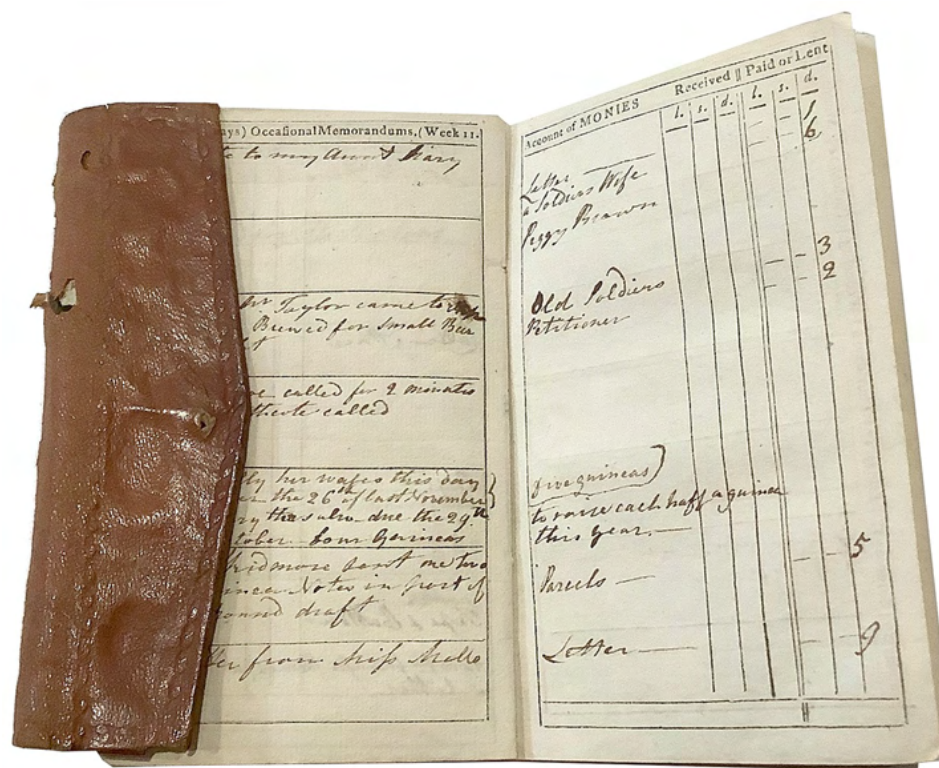 ays) Occaſional Memorandums. (Week 11.
to my Aunt Mary
Mr. Taylor came to
Brewed for Small Beer
called for 2 minutes
called
her wages this day
the 26th of last November
also due the 29th
tober four Guineas
sent me two
Notes in part of
draft
from Miſs Mello
Account of MONIES
Received || Paid or Lent
l. s. d. l. s. d.
Letter 1
a Soldiers Wife 6
Peggy Brown
Old Soldiers 3
Petitioner 2
five guineas)
to raise each half a guinea
this year.
Parcels 5
Letter 9